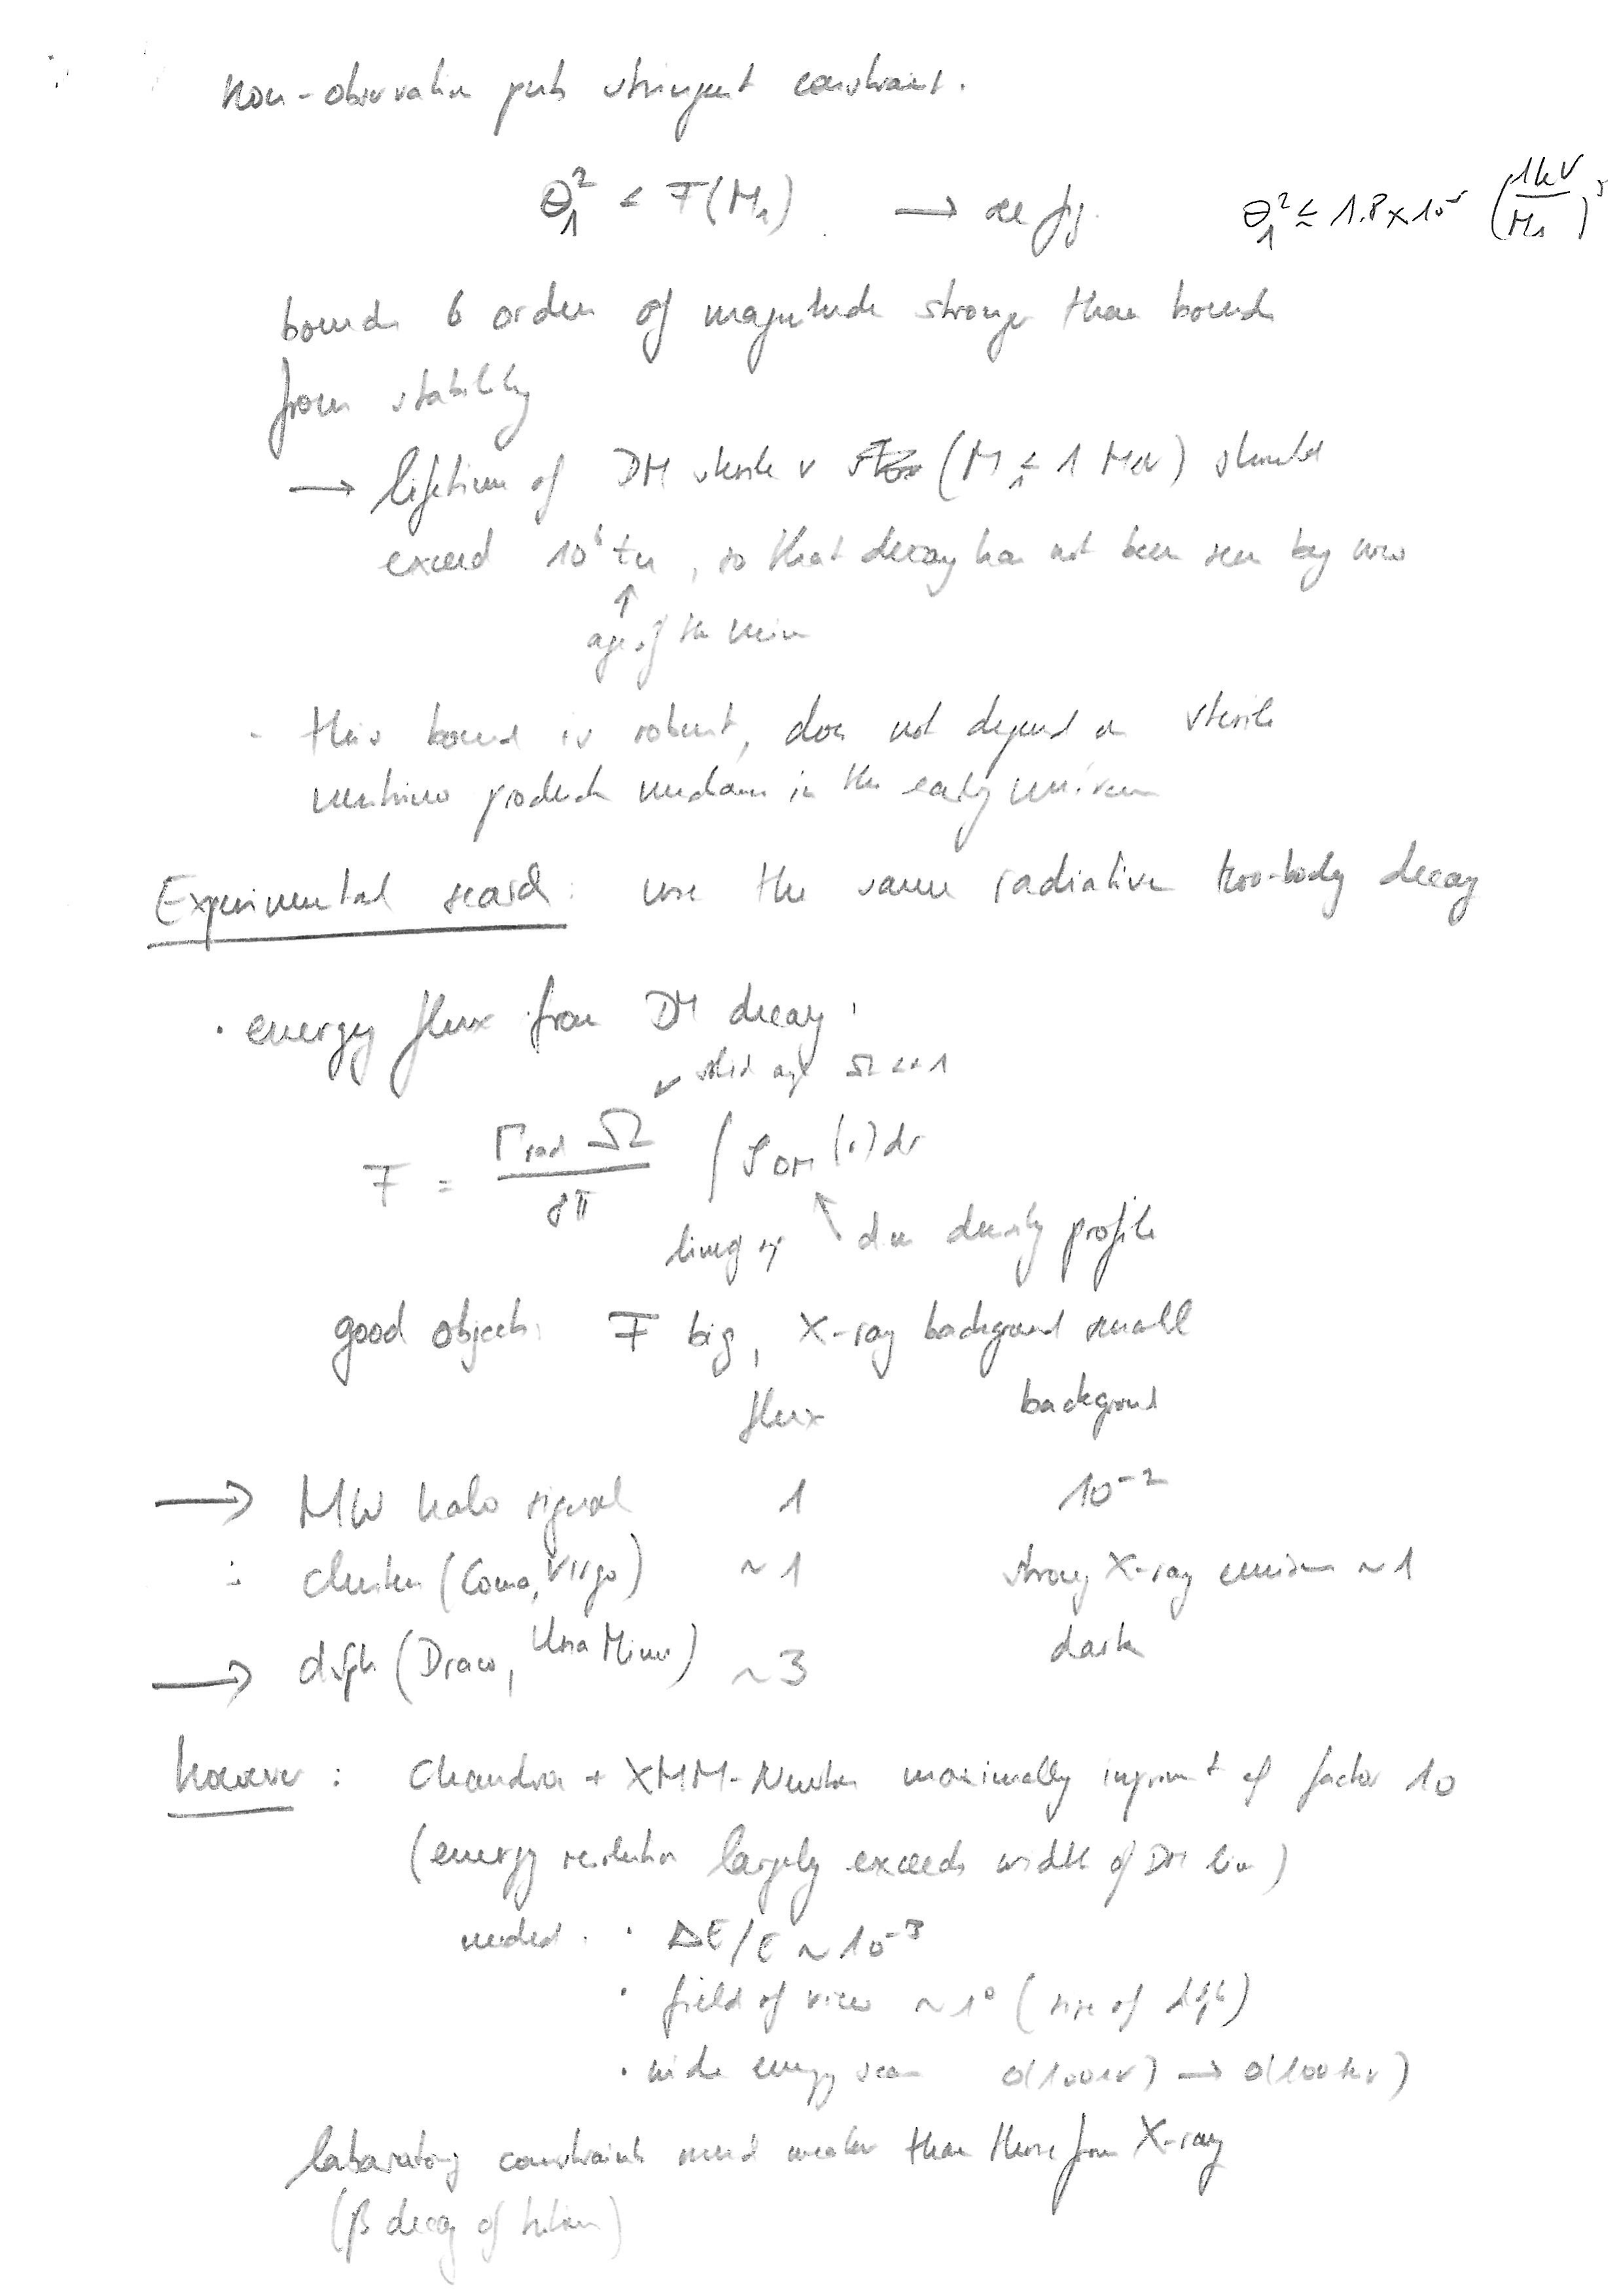 Non-observation puts stringent constraint.
θ₁² ≤ F(M₁) → see fig. θ₁² ≲ 1.8 × 10⁻⁵ (1keV/M₁)⁵
bounds 6 orders of magnitude stronger than bounds
from stability
→ lifetime of DM sterile ν (M₁ ≤ 1 MeV) should
exceed 10⁶ tu, so that decay has not been seen by now
↑
age of the Universe
- this bound is robust, does not depend on sterile
neutrino production mechanism in the early universe
Experimental search: use the same radiative two-body decay
· energy flux from DM decay:
↙ solid angle Ω << 1
F = Γrad Ω / 8π ∫ ρDM (r) dr
line of sight ↖ dm density profile
good objects: F big, X-ray background small
flux background
→ MW halo signal 1 10⁻²
: clusters (Coma, Virgo) ~1 strong X-ray emission ~1
→ dSph (Draco, Ursa Minor) ~3 dark
however: Chandra + XMM-Newton maximally improvement of factor 10
(energy resolution largely exceeds width of DM line)
needed: · ΔE/E ~ 10⁻³
· field of view ~1° (size of dSph)
· wide energy scan O(100eV) → O(100keV)
laboratory constraints much weaker than those from X-ray
(β decay of tritium)